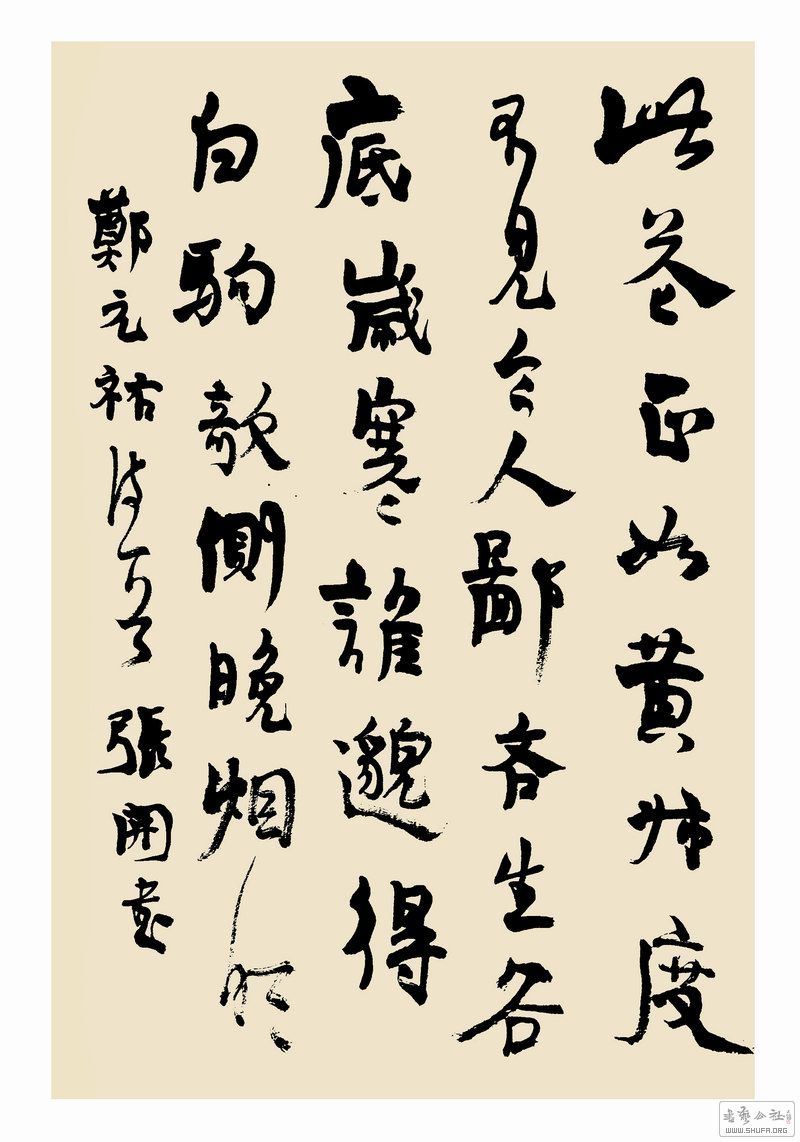 此花正如黄叔度
不見令人鄙吝生谷
底歲寒誰邈得
白駒欹側晚烟明
鄭元祐詩一首 張開書
書藝公社
WWW.SHUFA.ORG